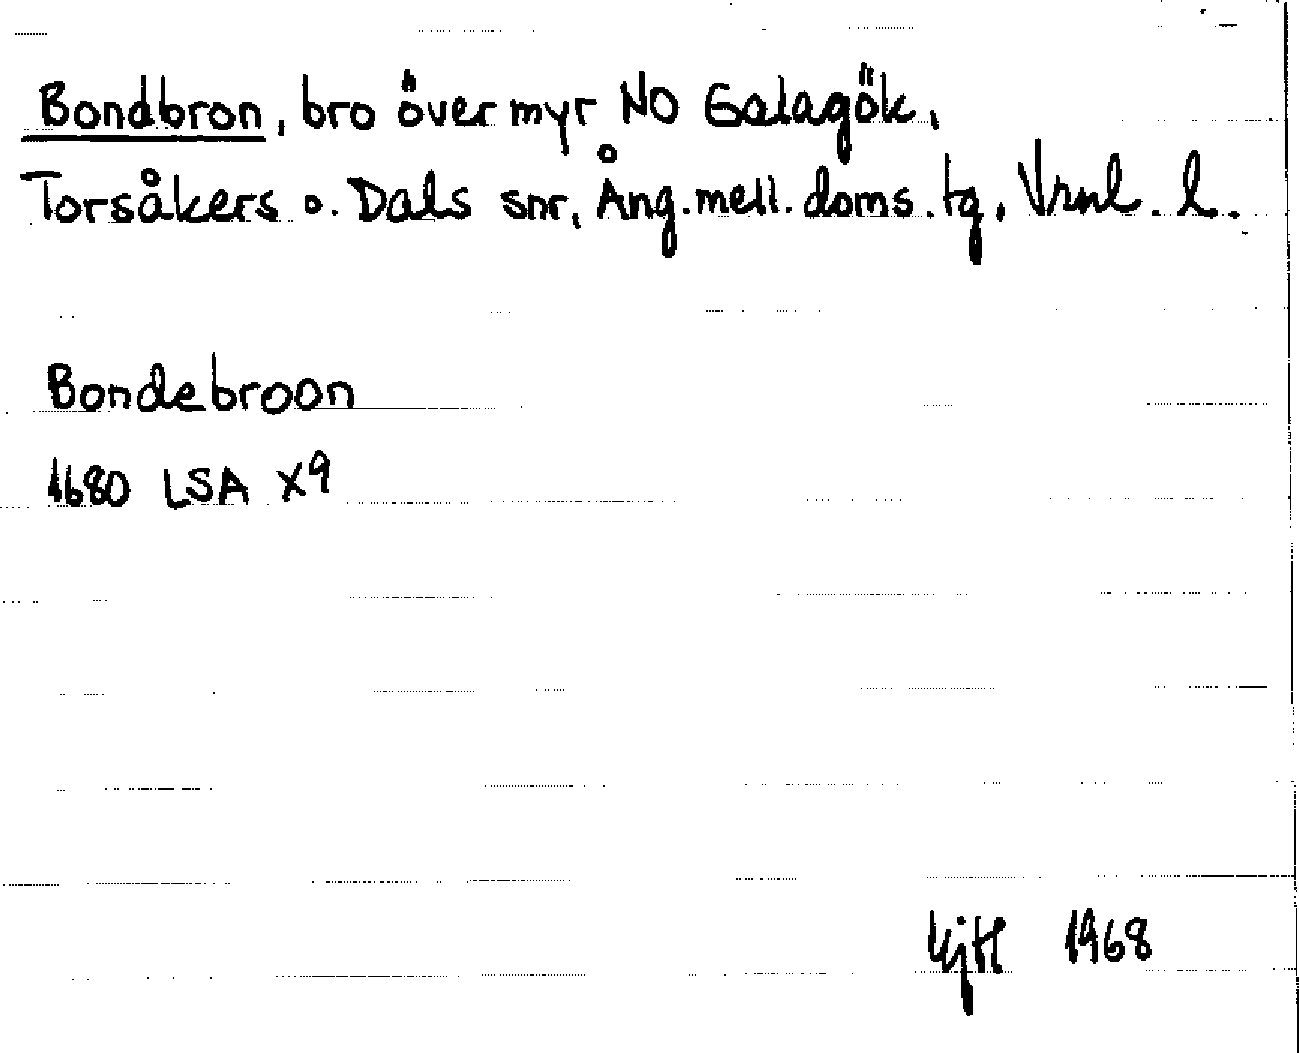 Bondbron, bro över myr NO Galagök,
Torsåkers o. Dals snr, Ång. mell. doms. tg, Vrnl. l.
Bondebroon
1680 LSA X9
KjH 1968